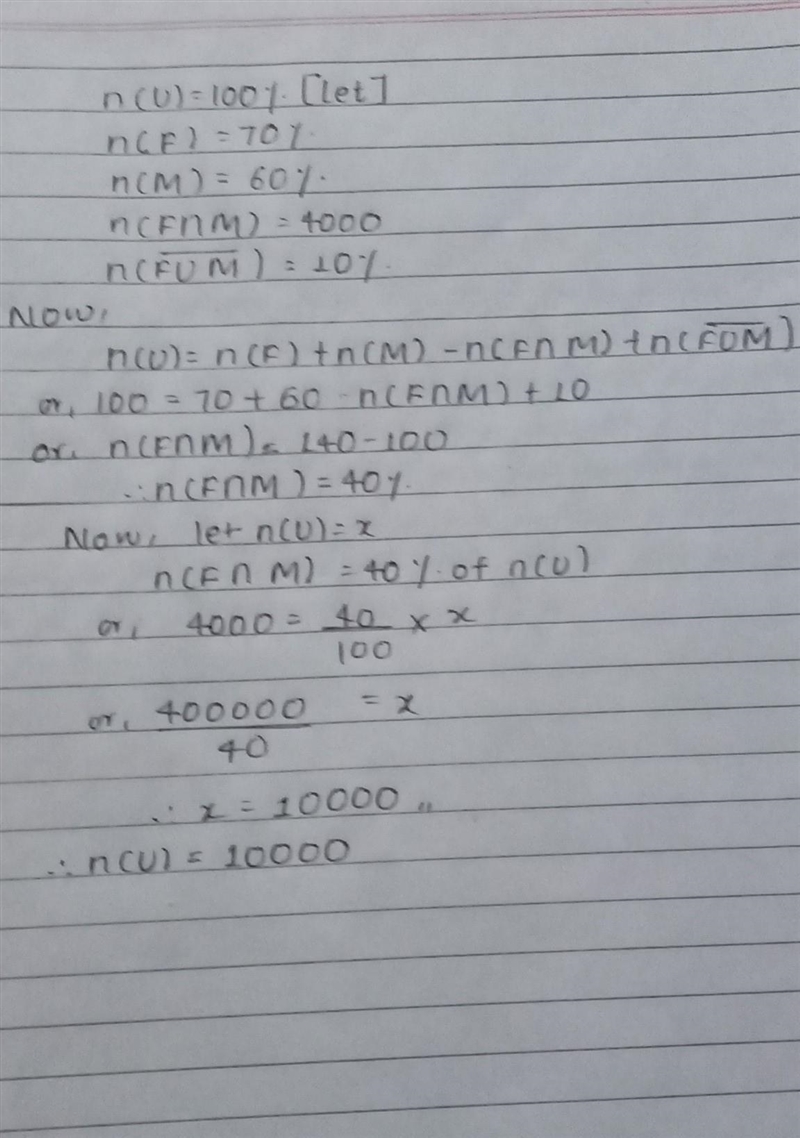 n(U)=100%. [let]
n(F) = 70%.
n(M) = 60%.
n(F∩M) = 4000
n(F̅U̅M̅) = 10%.
Now,
n(U)= n(F) +n(M) -n(F∩M) +n(F̅U̅M̅)
or, 100 = 70 + 60 - n(F∩M) + 10
or, n(F∩M) = 140-100
∴n(F∩M) = 40%.
Now, let n(U)= x
n(F∩M) = 40%. of n(U)
or, 4000 = 40/100 × x
or, 400000/40 = x
∴ x = 10000 ,,
∴n(U) = 10000